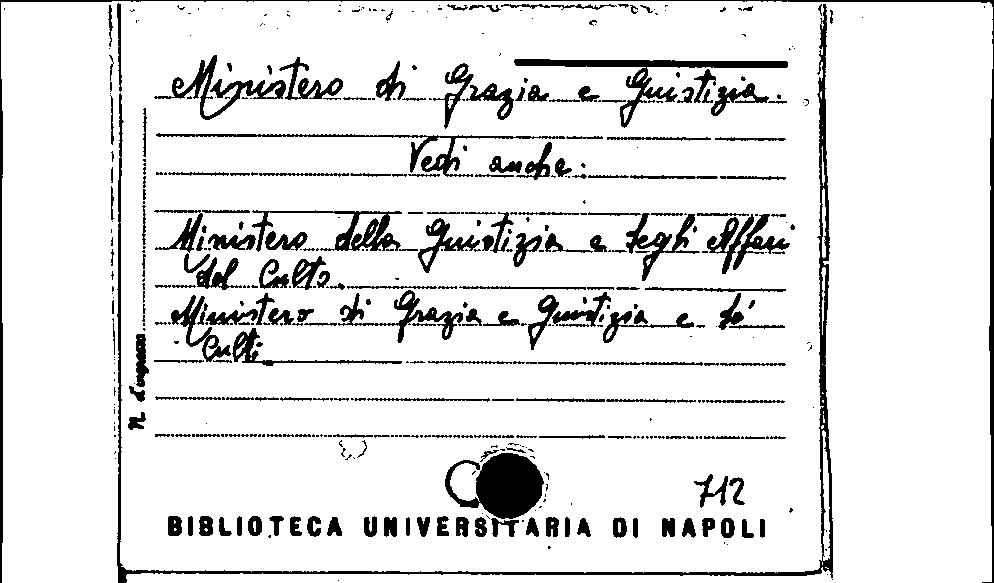 Ministero di Grazia e Giustizia.
Vedi anche:
Ministero della Giustizia e degli Affari
del Culto.
Ministero di Grazia e Giustizia e de'
Culti
N. d'ingresso
712
BIBLIOTECA UNIVERSITARIA DI NAPOLI